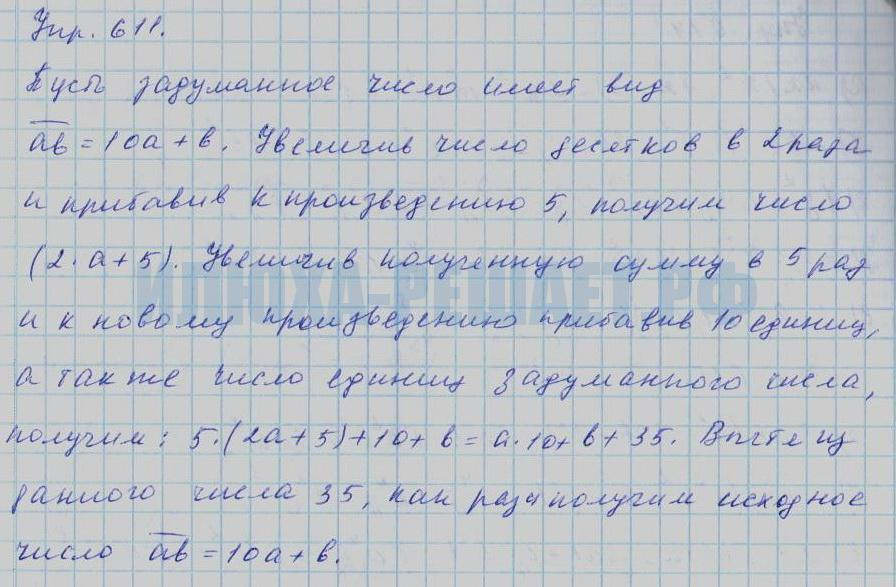 Упр. 611.
Пусть задуманное число имеет вид
ab = 10a + b. Увеличив число десятков в 2 раза
и прибавив к произведению 5, получим число
(2·a+5). Увеличив полученную сумму в 5 раз
ИЛЮХА-РЕШАЕТ.РФ
и к новому произведению прибавив 10 единиц,
а также число единиц задуманного числа,
получим: 5·(2a+5)+10+b = a·10+b+35. Вычтя из
данного числа 35, как раз и получим исходное
число ab = 10a + b.